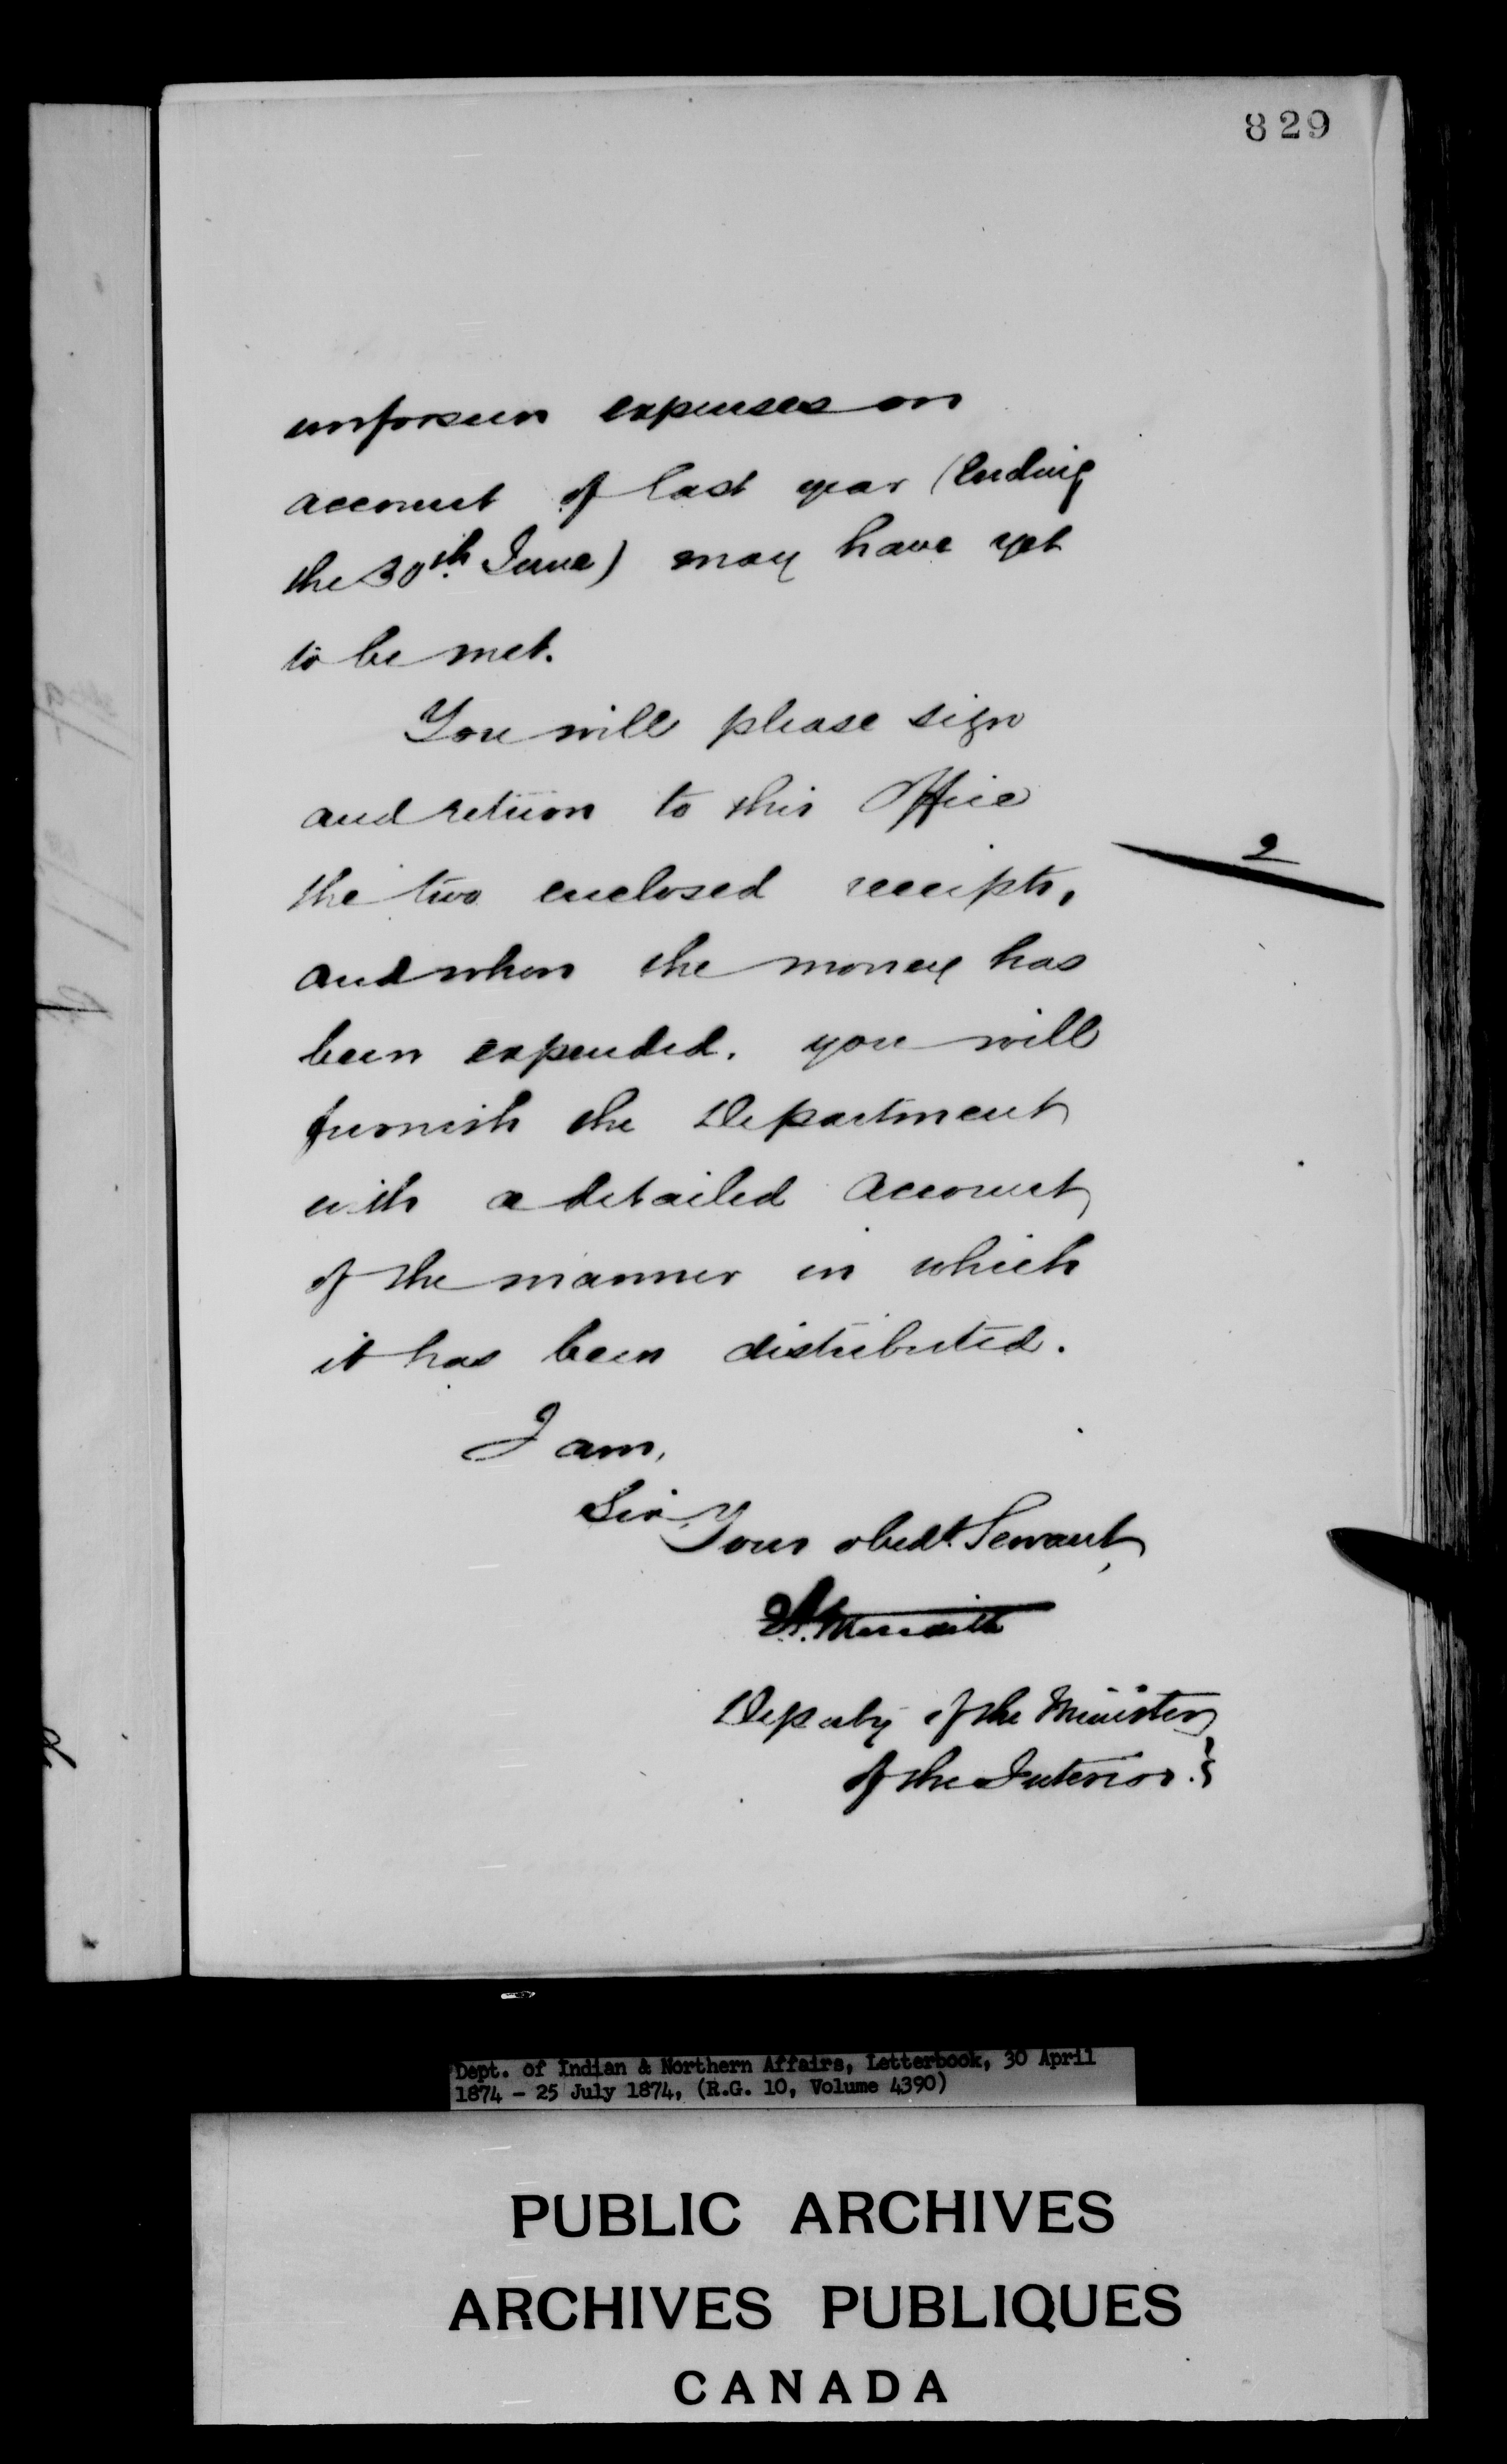 829
unforseen expenses on
account of last year (Ending
the 30th June) may have yet
to be met.
You will please sign
and return to this Office
the two enclosed receipts,
2
and when the money has
been expended, you will
furnish the Department
with a detailed account
of the manner in which
it has been distributed.
I am,
Sir
Your obedt. Servant,
E.A. Meredith
Deputy of the Minister
of the Interior.
Dept. of Indian & Northern Affairs, Letterbook, 30 April
1874 - 25 July 1874, (R.G. 10, Volume 4390)
PUBLIC ARCHIVES
ARCHIVES PUBLIQUES
CANADA